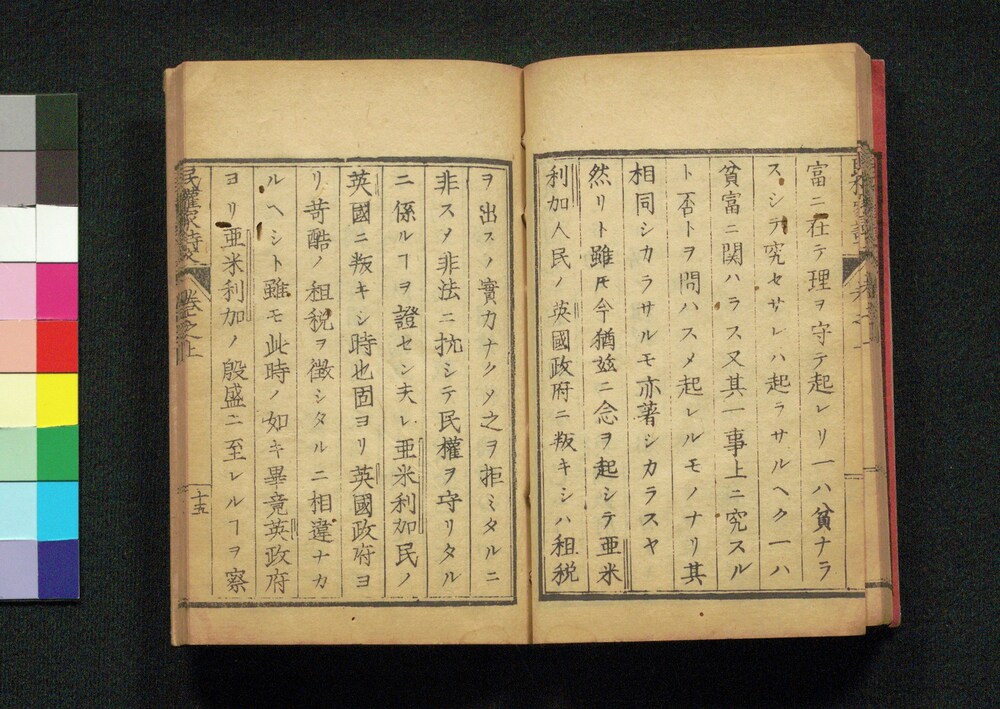 富ニ在テ理ヲ守テ起レリ一ハ貧ナラ
スシテ究セサレハ起ラサルヘク一ハ
貧富ニ関ハラス又其一事上ニ究スル
ト否トヲ問ハスメ起レルモノナリ其
相同シカラサルモ亦著シカラスヤ
然リト雖𪜈今猶玆ニ念ヲ起シテ亜米
利加人民ノ英國政府ニ叛キシハ租税
ヲ出スノ實力ナクメ之ヲ拒ミタルニ
非スメ非法ニ抗シテ民權ヲ守リタル
ニ係ルヿヲ證セン夫レ亜米利加民ノ
英國ニ叛キシ時也固ヨリ英國政府ヨ
リ苛酷ノ租税ヲ徴シタルニ相違ナカ
ルヘシト雖モ此時ノ如キ畢竟英政府
ヨリ亜米利加ノ殷盛ニ至レルヿヲ察
卷之上
十五